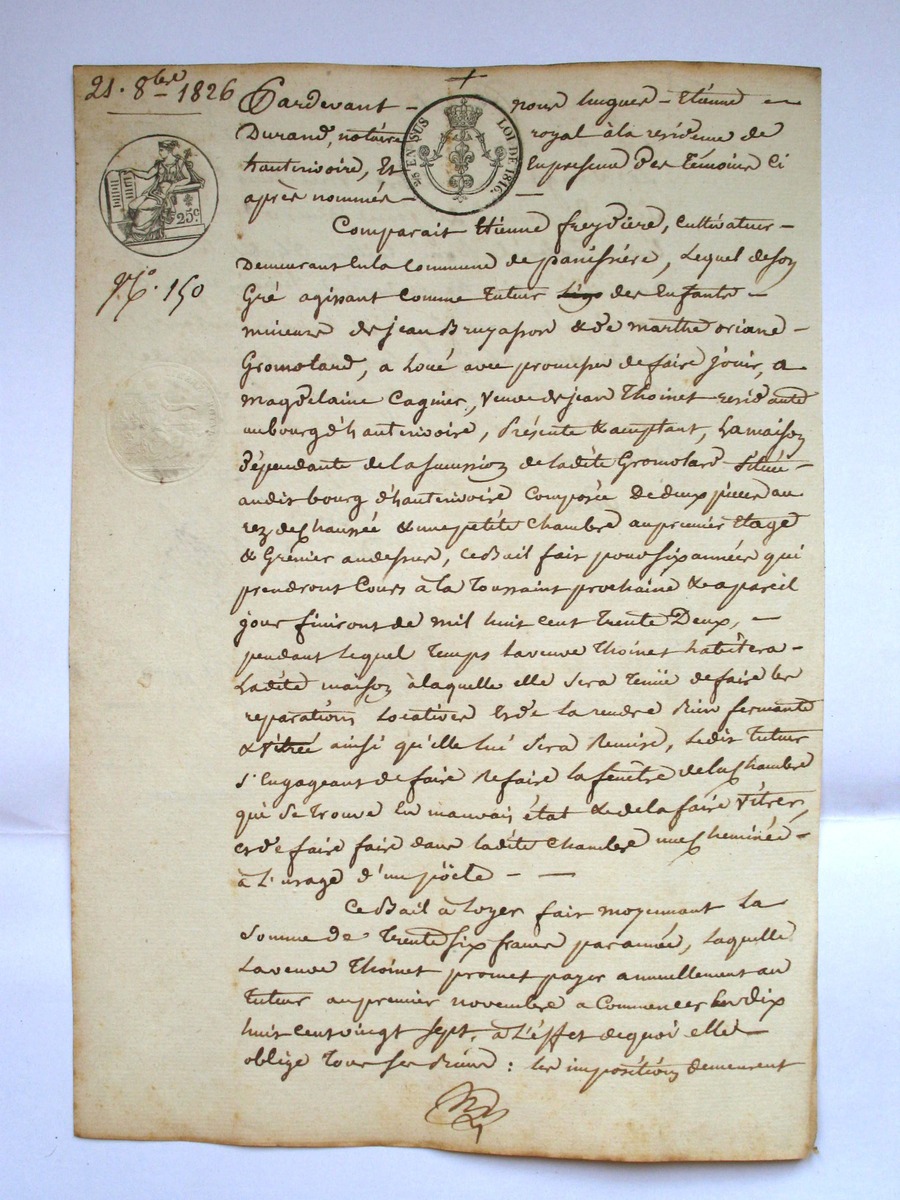 21. 8bre 1826
25c.
N.o 150
25 EN SUS LOI DE 1816.
Pardevant - nous hugues - Etienne -
Durand, notaire royal à la residence de
hauterivoire, Et En presence des Témoins Ci
après nommés -
Comparait Etienne freydiere, Cultivateur -
Demeurant En la Commune de panissière, Lequel de son
Gré agissant Comme Tuteur des Enfants -
mineurs de jean Bruyasson & de marthe oriane -
Gromolard, a Loué avec promesse de faire jouir, a
magdelaine Cagnier, veuve de jean Thoinet residante
au bourg d'hauterivoire, Présente & acceptant, La maison
dépendante de la succession de ladite Gromolard Située -
audit bourg d'hauterivoire Composée De deux pièces au
rez de Chaussée & une petite Chambre au premier Etage
& Grenier au dessus, Ce Bail fait pour six années qui
prendront Cours à la Toussaint prochaine & a pareil
jour finiront de mil huit Cent Trente Deux, -
pendant lequel Temps La veuve Thoinet habitera -
Ladite maison à laquelle elle sera Tenüe de faire les
reparations Locatives & de La rendre Bien fermante
& vitrée ainsi qu'elle lui sera Remise, Ledit Tuteur
s'Engageant de faire Refaire la fenêtre de la Chambre
qui se Trouve En mauvais état & de la faire Vitrer,
& de faire faire dans ladite Chambre une Cheminée -
à L'usage d'un poële - -
Ce Bail à Loyer fait moyennant La
Somme de Trente Six francs par année, Laquelle
La veuve Thoinet promet payer annuellement au
Tuteur au premier novembre a Commencer En dix
huit Cent vingt Sept, à L'effet de quoi elle
oblige Tous ses Biens : les impositions demeurent